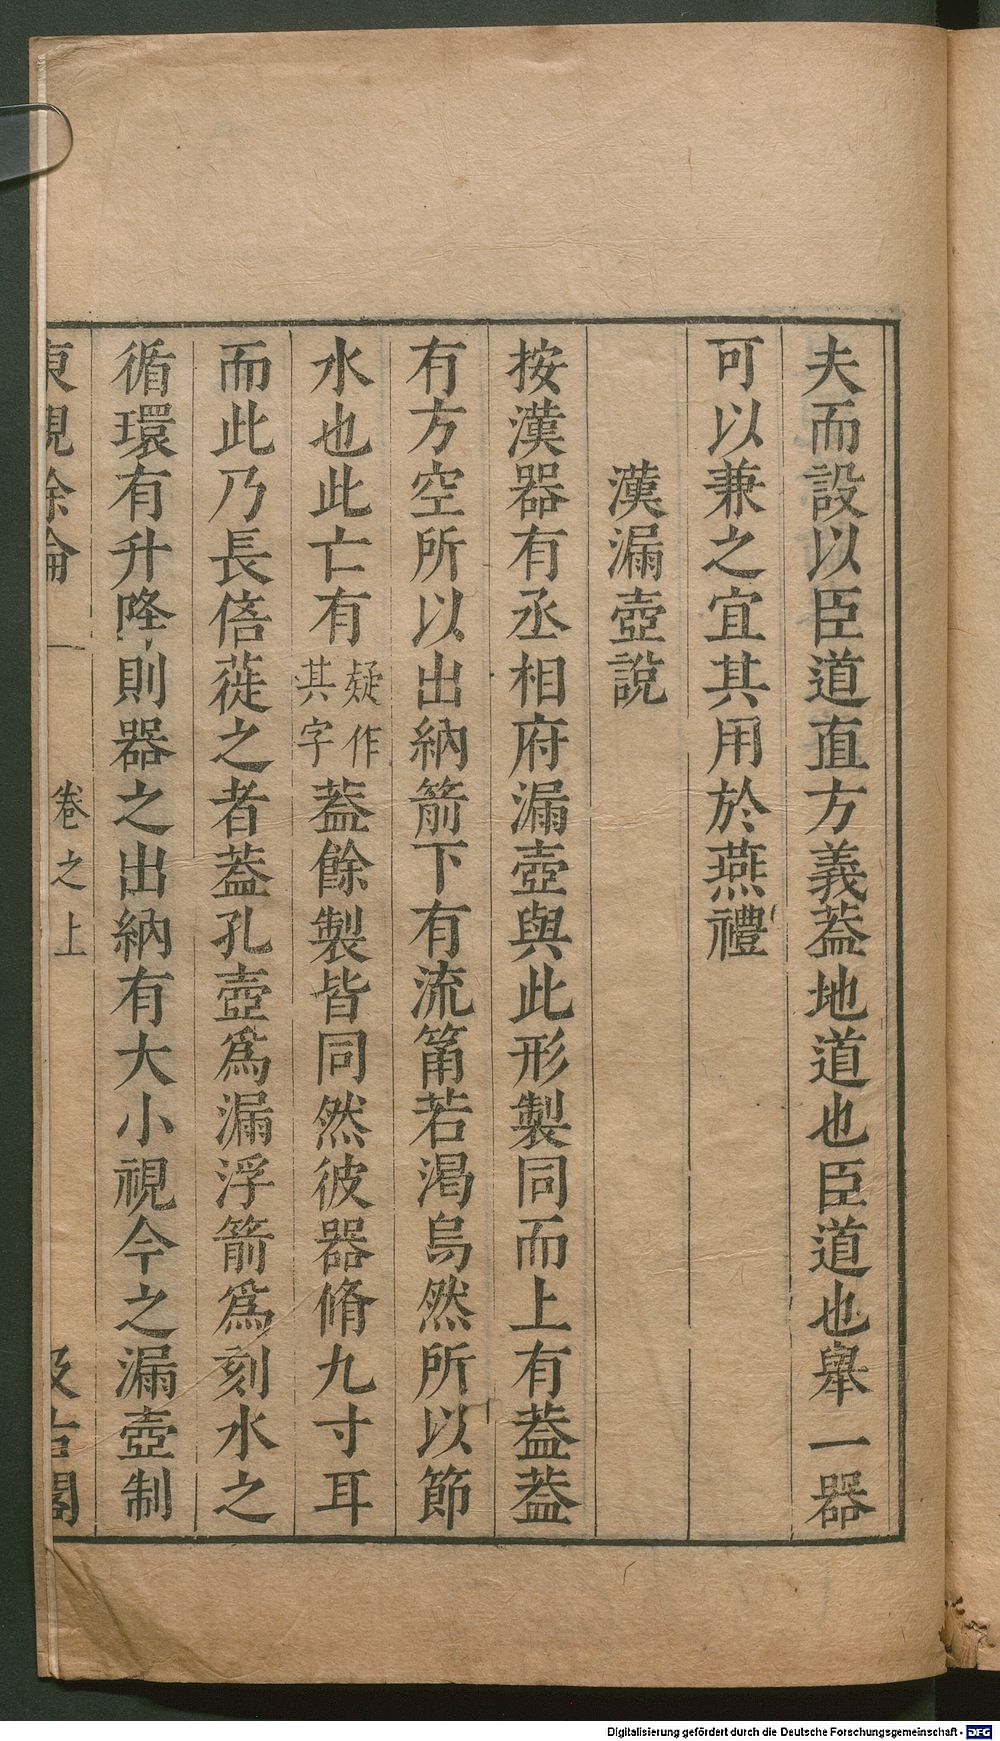 夫而設以臣道直方義葢地道也臣道也舉一器
可以兼之宜其用於燕禮
漢漏壺說
按漢器有丞相府漏壺與此形製同而上有葢葢
有方空所以出納箭下有流筩若渇烏然所以節
水也此亡有疑作其字葢餘製皆同然彼器脩九寸耳
而此乃長倍蓰之者葢孔壺爲漏浮箭爲刻水之
循環有升降則器之出納有大小視今之漏壺制
東觀餘論 卷之上 汲古閣
Digitalisierung gefördert durch die Deutsche Forschungsgemeinschaft - DFG